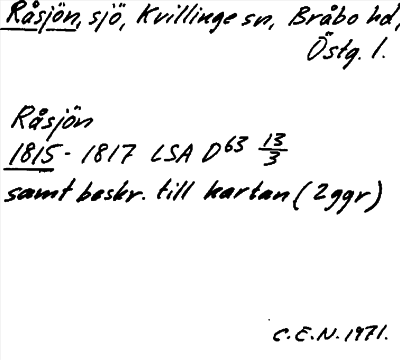 Råsjön, sjö, Kvillinge sn, Bråbo hd,
Östg. l.
Råsjön
1815 - 1817 LSA D63 13/3
samt beskr. till kartan (2ggr)
C.E.N. 1971.